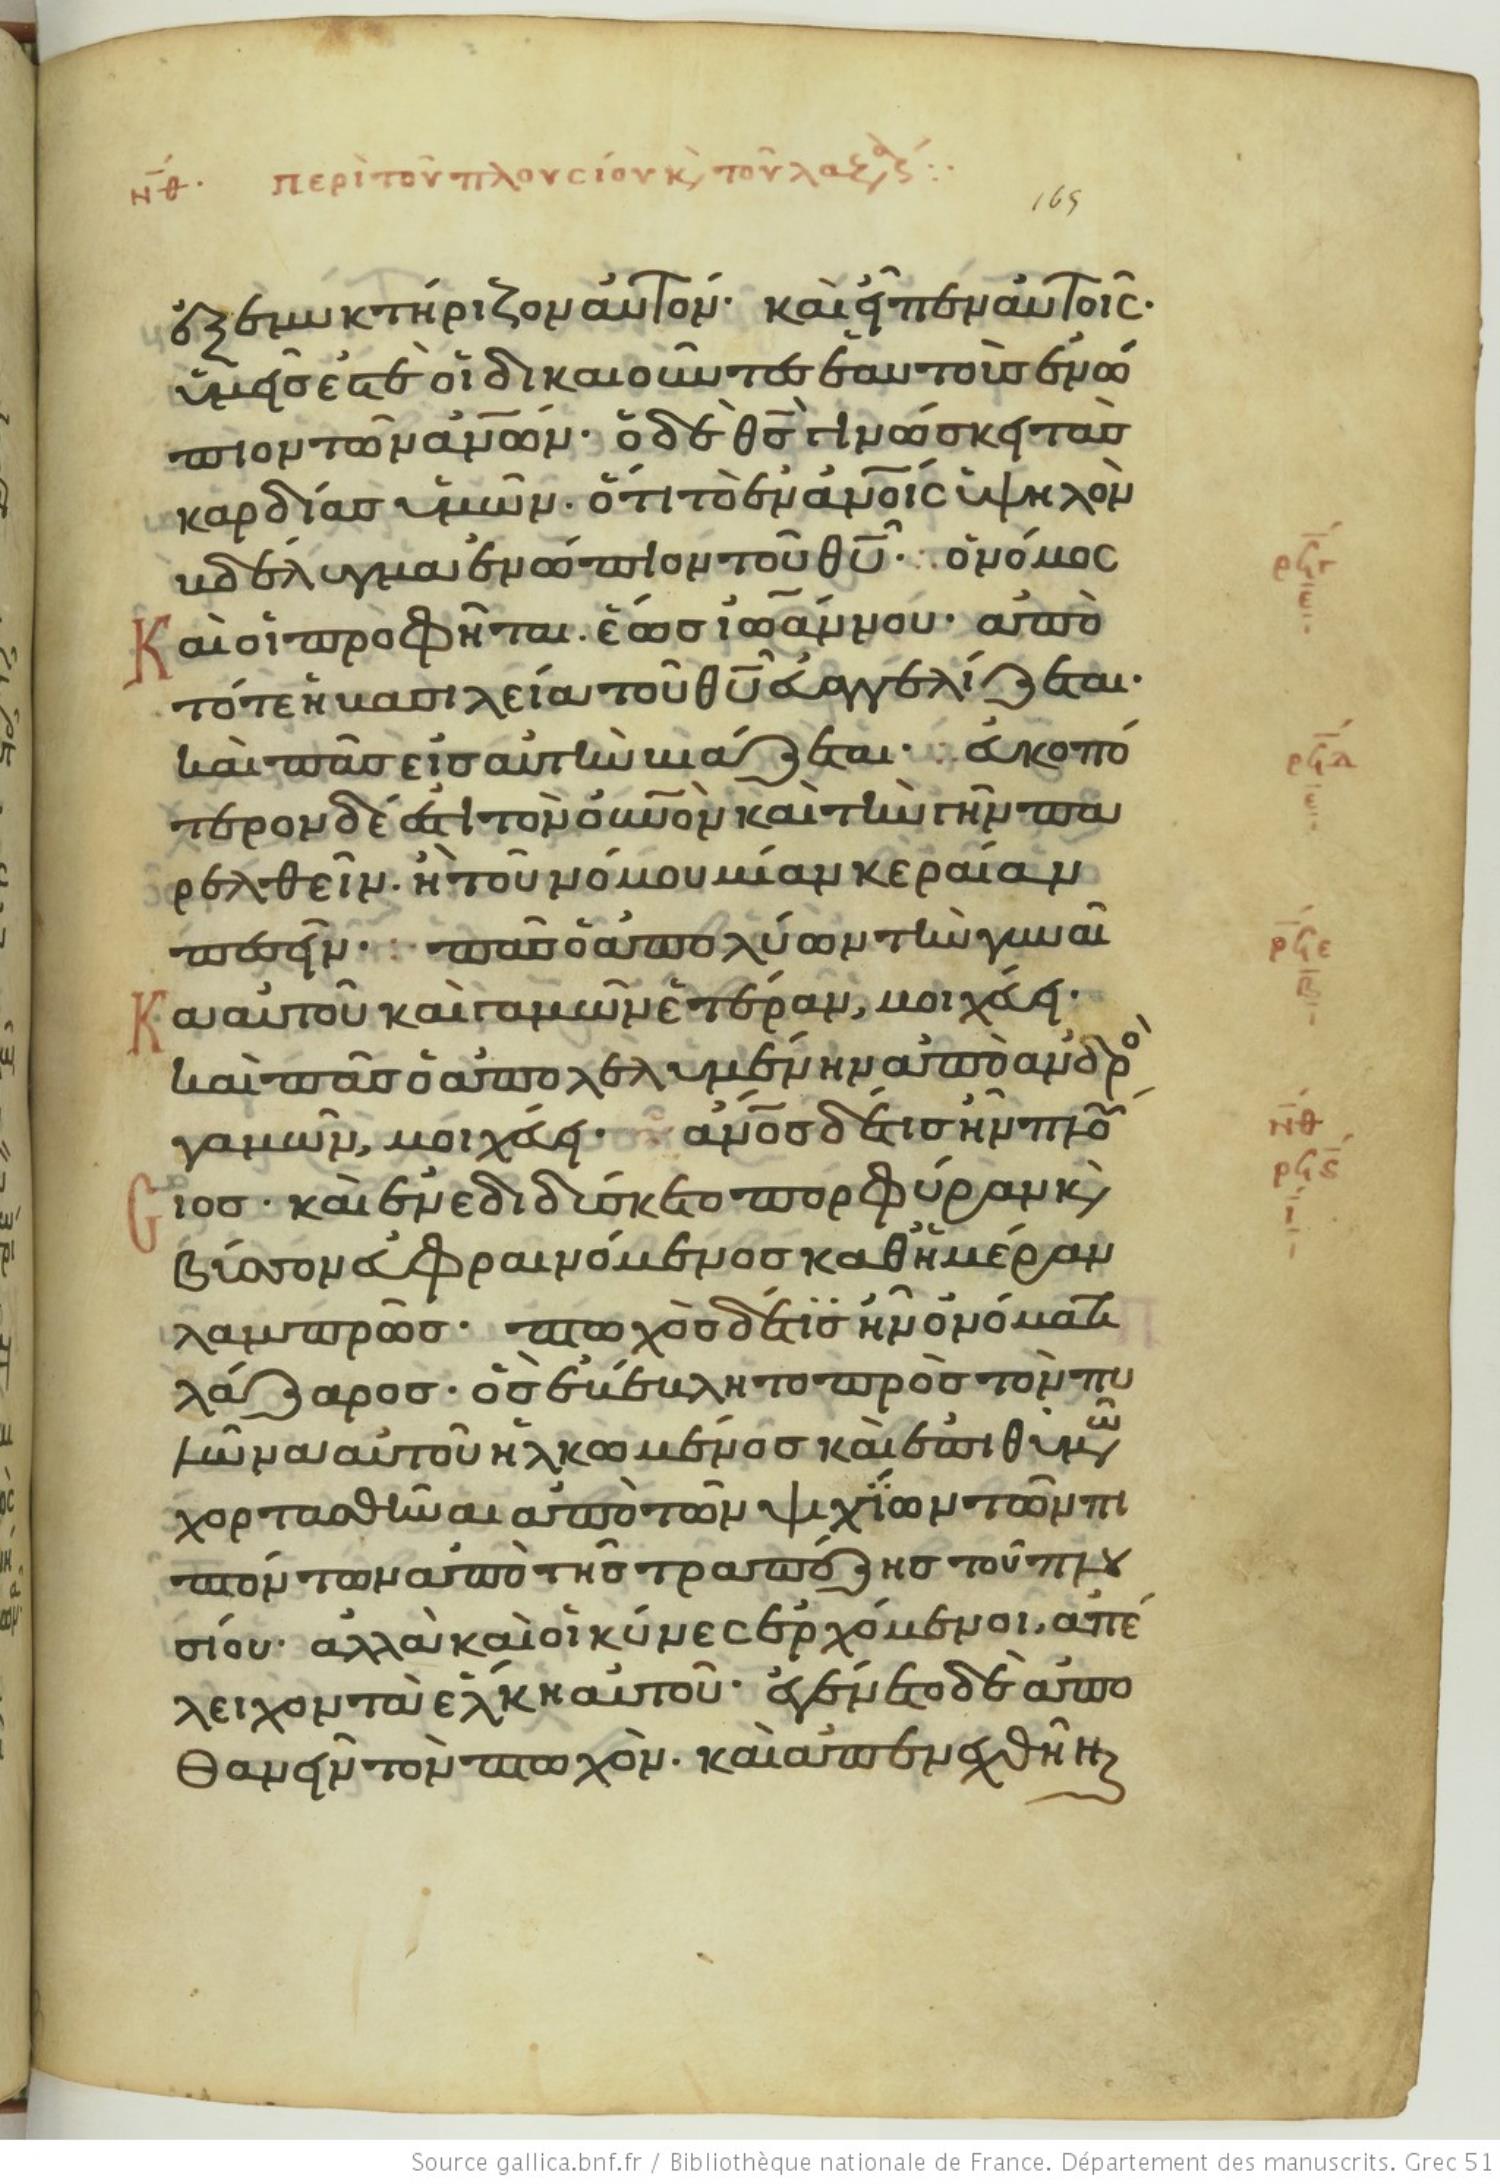 ν̅θ. περὶ τοῦ πλουσίου κ(αὶ) τοῦ λαζάρ
165
ἐξεμυκτήριζον αὐτόν· καὶ εἶπεν αὐτοῖς·
ὑμεῖς ἐστὲ οἱ δικαιοῦντες ἑαυτοὺς ἐνώ
πιον τῶν ἀν̅ων· ὁ δὲ θ̅ς γινώσκει τὰς
καρδίας ὑμῶν· ὅτι τὸ ἐν ἀν̅οις ὑψηλὸν
βδέλυγμα ἐνώπιον τοῦ θ̅υ· ὁ νόμος
Καὶ οἱ προφῆται. ἕως ἰω̅άννου· ἀπὸ
τότε ἡ βασιλεία τοῦ θ̅υ εὐαγγελίζεται·
καὶ πᾶς εἰς αὐτὴν βιάζεται· εὐκοπώ
τερον δέ ἐστι τὸν οὐ̅νον καὶ τὴν γῆν πα
ρελθεῖν. ἢ τοῦ νόμου μίαν κεραίαν
πεσεῖν· πᾶς ὁ ἀπολύων τὴν γυναῖ
Κα αὐτοῦ καὶ γαμῶν ἑτέραν, μοιχεύει·
καὶ πᾶς ὁ ἀπολελυμένην ἀπὸ ἀνδρὸ
γαμῶν, μοιχεύει· ἀν̅ος δέ τις ἦν πλού
Cιος· καὶ ἐνεδιδύσκετο πορφύραν κ(αὶ)
βύσσον εὐφραινόμενος καθ' ἡμέραν
λαμπρῶς· πτωχὸς δέ τις ἦν ὀνόματι
λάζαρος· ὃς ἐβέβλητο πρὸς τὸν πυ
λῶνα αὐτοῦ ἡλκωμένος καὶ ἐπιθυμῶν
χορτασθῆναι ἀπὸ τῶν ψιχίων τῶν πι
πτόντων ἀπὸ τῆς τραπέζης τοῦ πλου
σίου· ἀλλὰ καὶ οἱ κύνες ἐρχόμενοι, ἀπέ
λειχον τὰ ἕλκη αὐτοῦ· ἐγένετο δὲ ἀπο
θανεῖν τὸν πτωχόν. καὶ ἀπενεχθῆν
ρϟγ
ε
ρϟδ
ε
ρϟε
β
ν̅θ
ρϟς
ι
Source gallica.bnf.fr / Bibliothèque nationale de France. Département des manuscrits. Grec 51